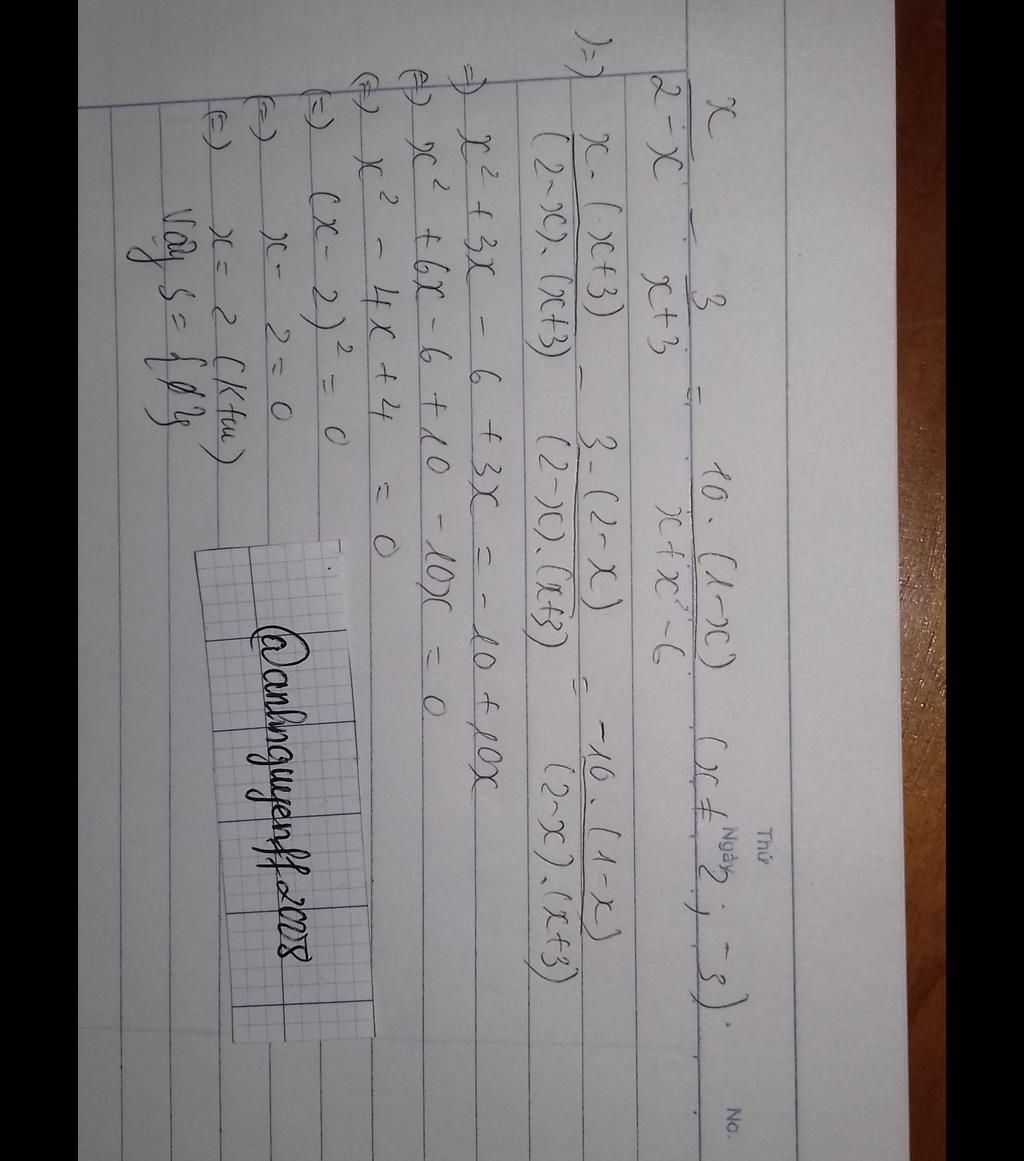 Thứ
Ngày No.
x/(2-x) - 3/(x+3) = 10.(1-x)/(x+x²-6) (x ≠ 2; -3).
)=) x.(x+3)/((2-x).(x+3)) - 3-(2-x)/((2-x).(x+3)) = -10.(1-x)/((2-x).(x+3))
=) x² + 3x - 6 + 3x = -10 + 10x
(=) x² + 6x - 6 + 10 - 10x = 0
(=) x² - 4x + 4 = 0
(=) (x - 2)² = 0
(=) x - 2 = 0
(=) x = 2 (Ktm)
Vậy S = {∅}
@anhnguyenff2008